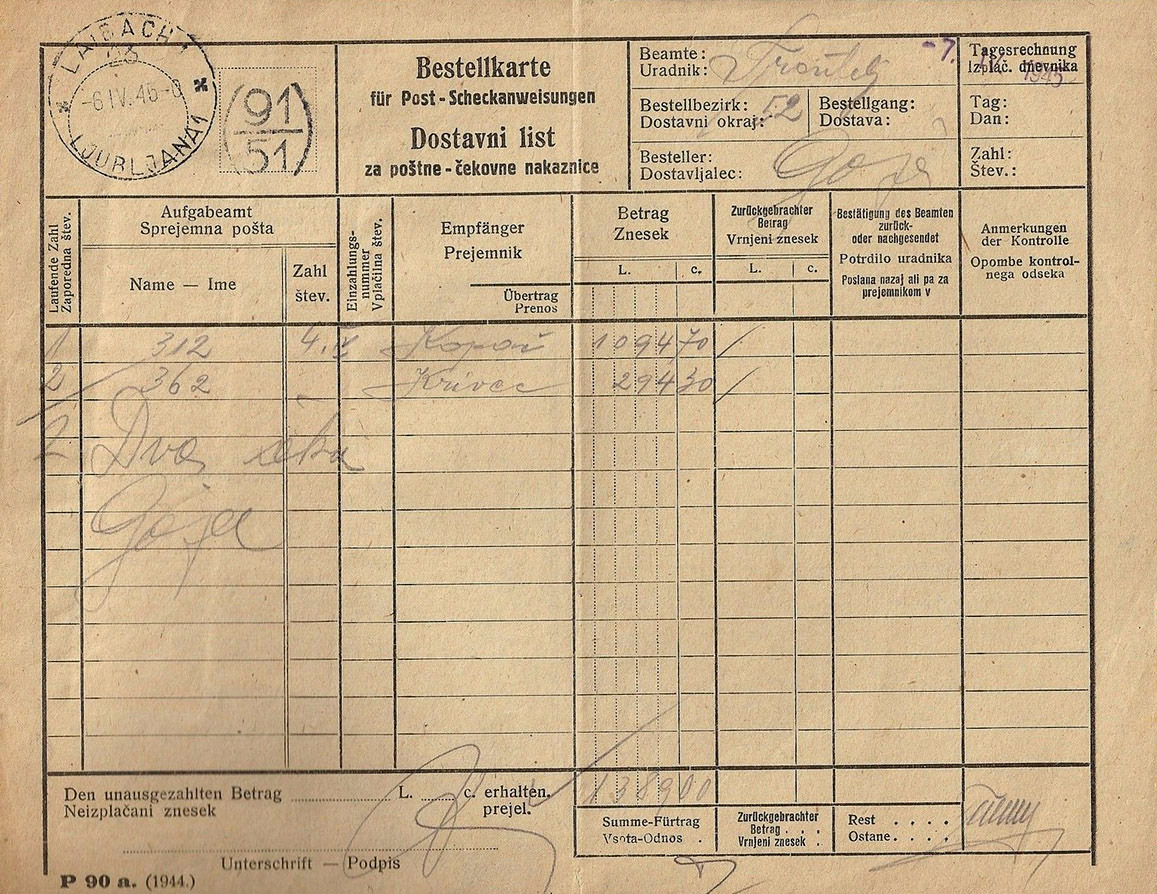 LAIBACH 1
23
-6.IV.45-8
LJUBLJANA 1
91
51
Bestellkarte
für Post-Scheckanweisungen
Dostavni list
za poštne-čekovne nakaznice
Beamte:
Uradnik:
Bestellbezirk: 52
Dostavni okraj:
Bestellgang:
Dostava:
Besteller:
Dostavljalec:
-7.
1945
Tagesrechnung
Izplač. dnevnika
Tag:
Dan:
Zahl:
Štev.:
Laufende Zahl
Zaporedna štev.
Aufgabeamt
Sprejemna pošta
Name — Ime
Zahl
štev.
Einzahlungs-
nummer
Vplačilna štev.
Empfänger
Prejemnik
Übertrag
Prenos
Betrag
Znesek
L. c.
Zurückgebrachter
Betrag
Vrnjeni znesek
L. c.
Bestätigung des Beamten
zurück-
oder nachgesendet
Potrdilo uradnika
Poslana nazaj ali pa za
prejemnikom v
Anmerkungen
der Kontrolle
Opombe kontrol-
nega odseka
1 312 Kopač 1094 70 /
2 362 Krivec 294 30 /
2 Dva
1389 00
Den unausgezahlten Betrag .......... L. ...... c. erhalten.
Neizplačani znesek prejel.
Unterschrift — Podpis
Summe-Fürtrag
Vsota-Odnos .
Zurückgebrachter
Betrag . . .
Vrnjeni znesek .
Rest . . . .
Ostane . . . .
P 90 a. (1944.)